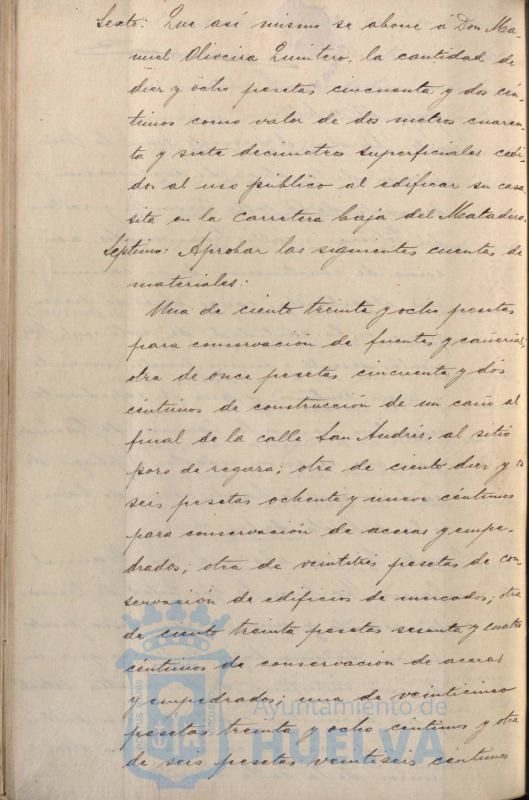 Sexto: Que así mismo se abone á Don Ma-
nuel Oliveira Quintero, la cantidad de
diez y ocho pesetas cincuenta y dos cén-
timos como valor de dos metros cuaren-
ta y siete decimetros superficiales cedi-
dos al uso público al edificar su casa
sita en la carretera baja del Matadero.
Séptimo: Aprobar las siguientes cuentas de
materiales:
Una de ciento treinta y ocho pesetas
para conservacion de fuentes y cañerias;
otra de once pesetas cincuenta y dos
céntimos de construcción de un caño al
final de la calle San Andrés, al sitio
pozo de ; otra de ciento diez y
seis pesetas ochenta y nueve céntimos
para conservación de aceras y empe-
drados; otra de veintitrés pesetas de con-
servación de edificios de mercados; otra
de ciento treinta pesetas sesenta y cuatro
céntimos de conservacion de aceras
y empedrados; una de veinticinco
pesetas treinta y ocho céntimos y otra
de seis pesetas veintiseis céntimos
Ayuntamiento de
HUELVA